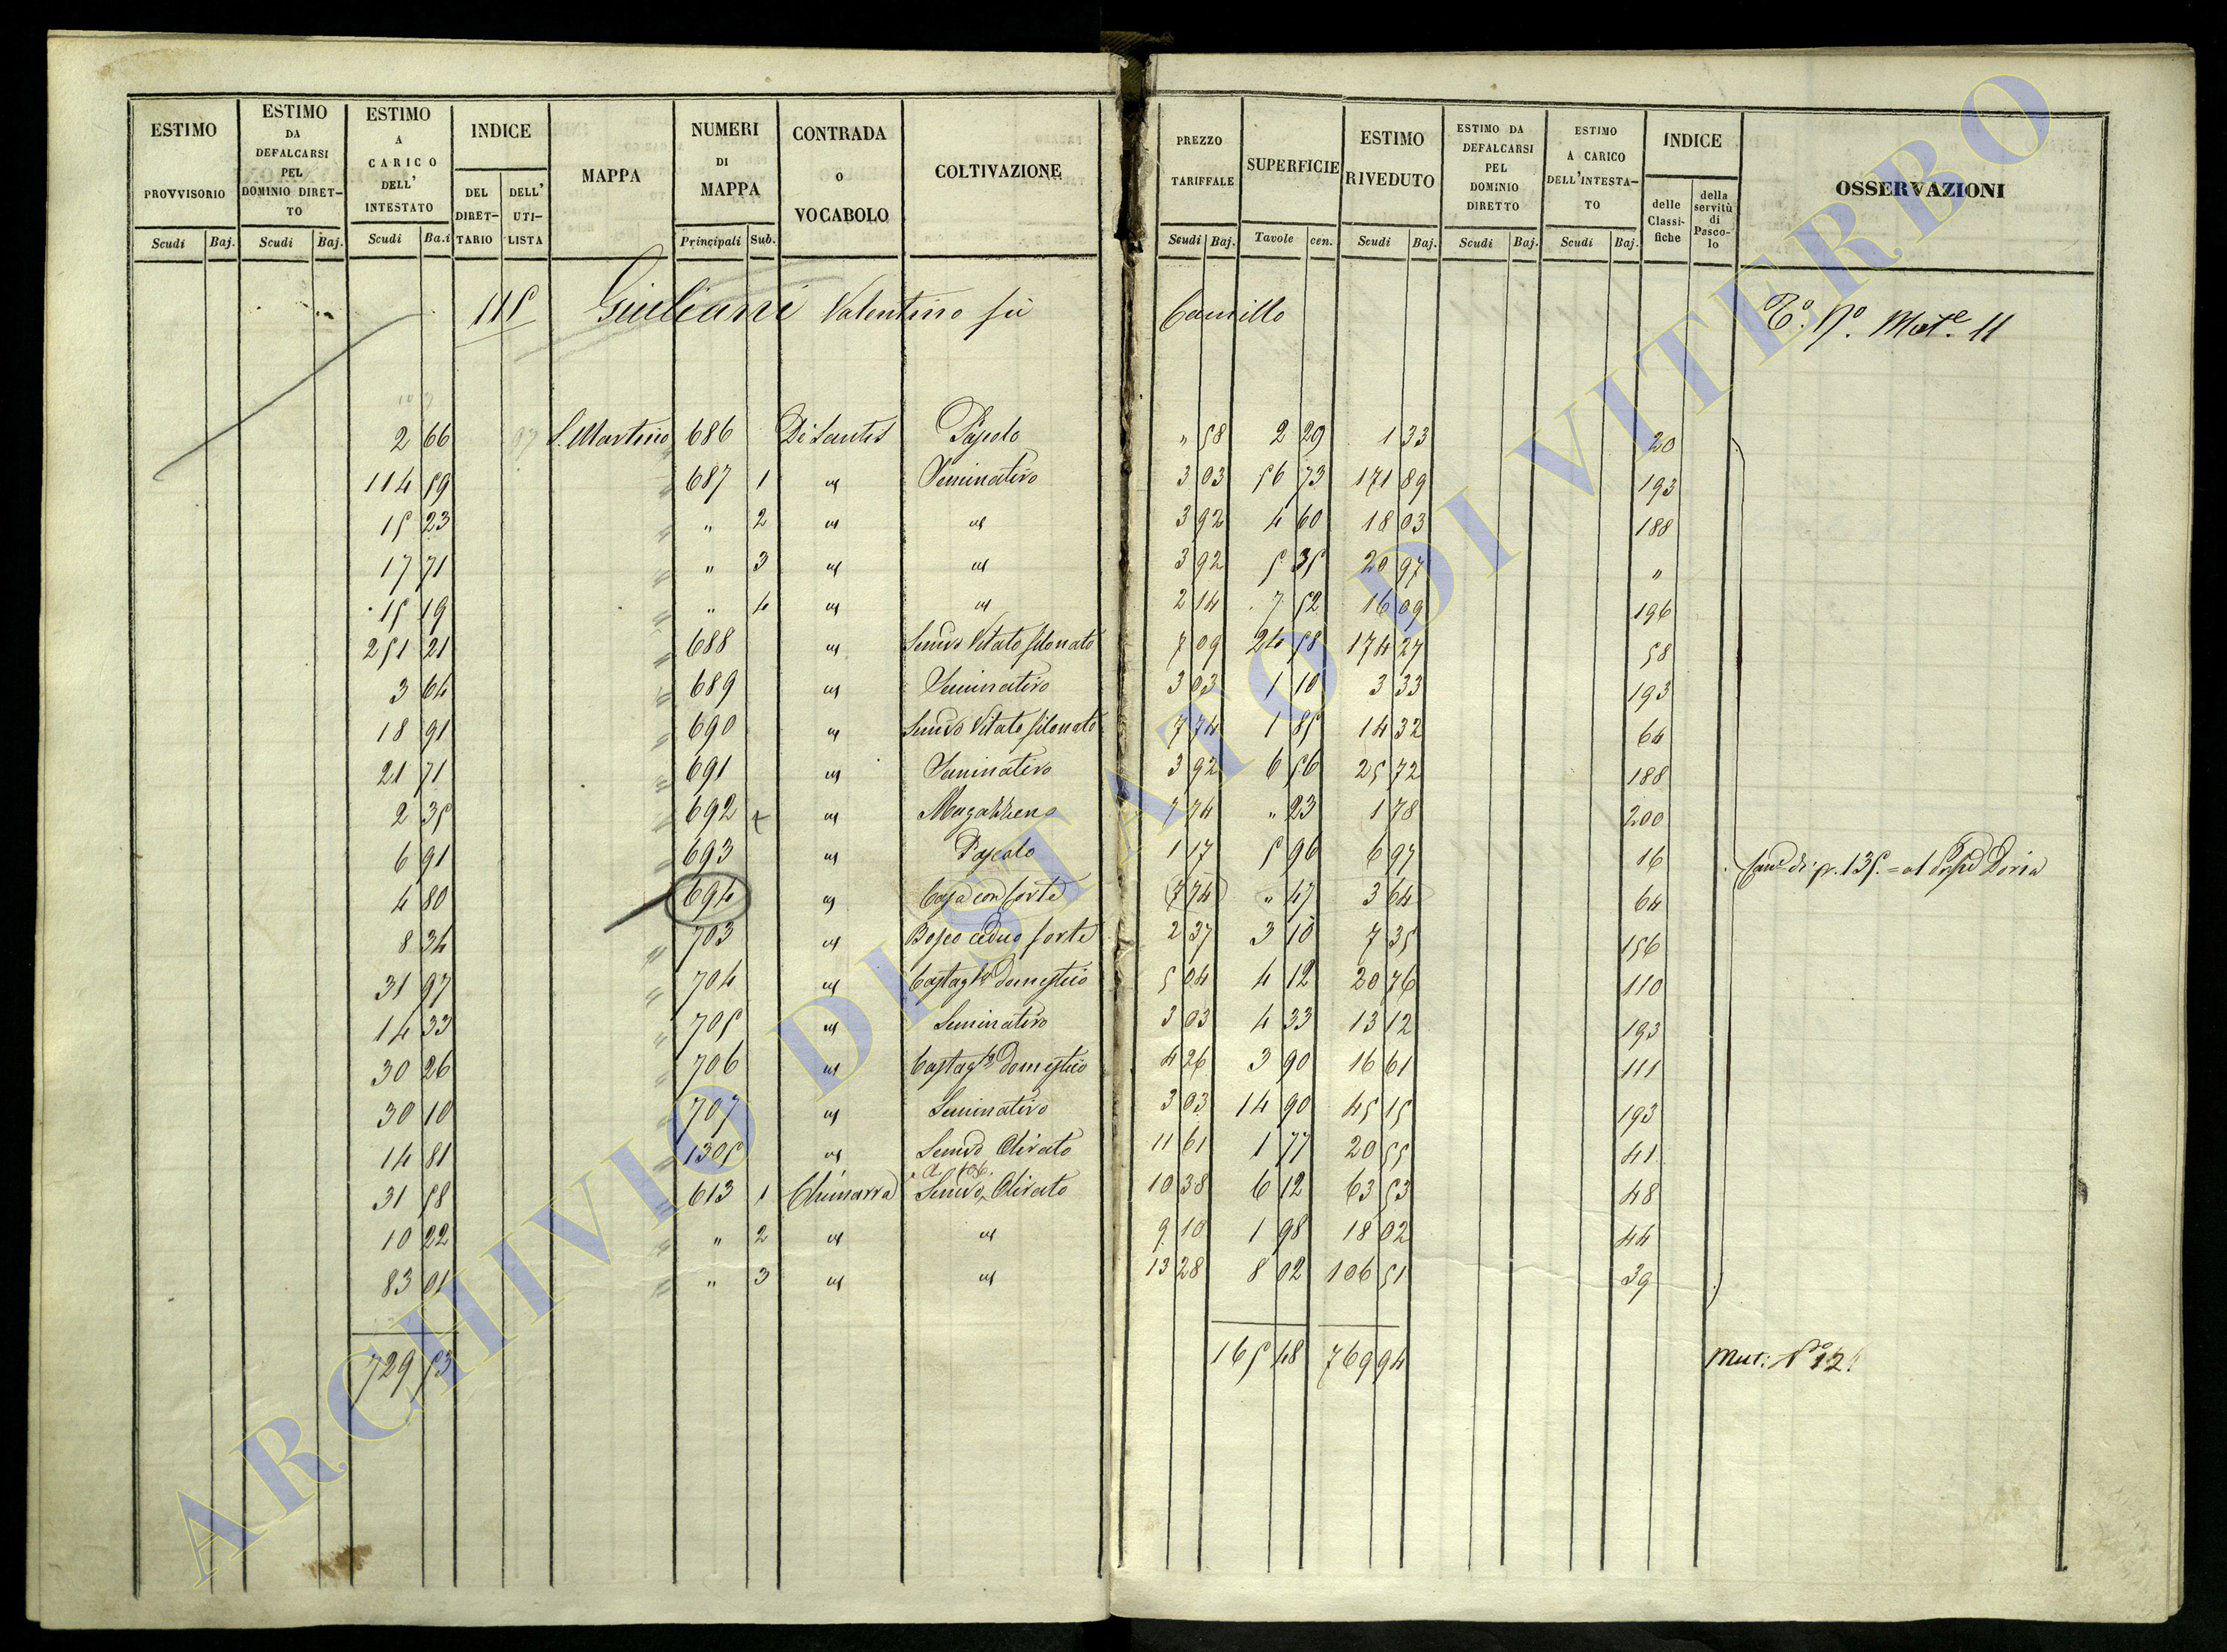 ESTIMO PROVVISORIO Scudi Baj.
ESTIMO DA DEFALCARSI PEL DOMINIO DIRET-TO Scudi Baj.
ESTIMO A CARICO DELL' INTESTATO Scudi Ba.i
INDICE DEL DIRET-TARIO DELL' UTI-LISTA
MAPPA
NUMERI DI MAPPA Principali Sub.
CONTRADA o VOCABOLO
COLTIVAZIONE
PREZZO TARIFFALE Scudi Baj.
SUPERFICIE Tavole cen.
ESTIMO RIVEDUTO Scudi Baj.
ESTIMO DA DEFALCARSI PEL DOMINIO DIRETTO Scudi Baj.
ESTIMO A CARICO DELL'INTESTA-TO Scudi Baj.
INDICE delle Classi-fiche della servitù di Pasco-lo
OSSERVAZIONI
115 Giuliani Valentino fù Camillo Mate. 11
2 66 97 S. Martino 686 De Santis Pascolo " 58 2 29 1 33 20
114 59 687 1 " Seminativo 3 03 56 73 171 89 193
15 23 " 2 " " 3 92 4 60 18 03 188
17 71 " 3 " " 3 92 5 35 20 97 "
15 19 " 4 " " 2 14 7 52 16 09 196
251 21 688 " Semvo Vitato filonato 7 09 24 58 174 27 58
3 64 689 " Seminativo 3 03 1 10 3 33 193
18 91 690 " Semvo Vitato filonato 7 74 1 85 14 32 64
21 71 691 " Seminativo 3 92 6 56 25 72 188
2 35 692 + " Magazzeno 7 74 " 23 1 78 200
6 91 693 " Pascolo 1 17 5 96 6 97 16 di p. 135. = al Doria
4 80 694 " Casa con Corte 7 74 " 47 3 64 64
8 34 703 " Bosco ceduo forte 2 37 3 10 7 35 156
31 97 704 " Castagto domestico 5 04 4 12 20 76 110
14 33 705 " Seminativo 3 03 4 33 13 12 193
30 26 706 " Castagto domestico 4 26 3 90 16 61 111
30 10 707 " Seminativo 3 03 14 90 45 15 193
14 81 1305 " Semvo Olivato 11 61 1 77 20 55 41
31 58 613 1 Chimarra Semvo Olivato 10 38 6 12 63 53 48
10 22 " 2 " " 9 10 1 98 18 02 44
83 01 " 3 " " 13 28 8 02 106 51 39
729 53 165 48 769 94 Mut: No 12
ARCHIVIO DI STATO DI VITERBO